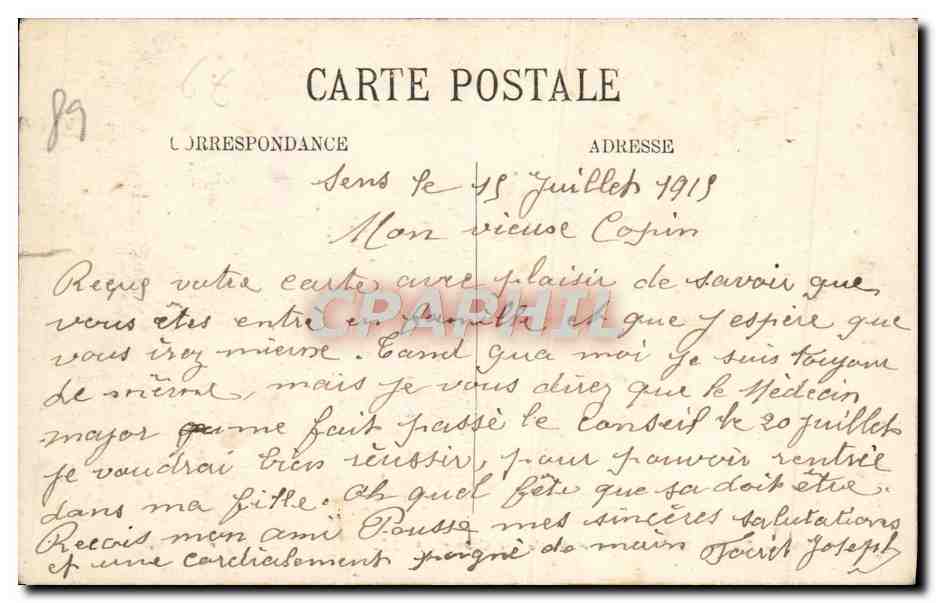 89
CARTE POSTALE
CORRESPONDANCE
ADRESSE
Sens le 15 Juillet 1915
Mon vieuse Copin
Reçus votre carte avec plaisir de savoir que
vous êtes entre en famille et que j espère que
vous irez mieme. Tand qua moi je suis toujour
de même, mais je vous direz que le Médecin
major me fait passé le conseil le 20 juillet
je voudrai bien réussir, pour pouvoir rentrée
dans ma fille. Oh quel fête que sa doit être.
Recois mon ami Pousse mes sincères salutations
et une cordialement poigné de main Joseph
CPAPHIL